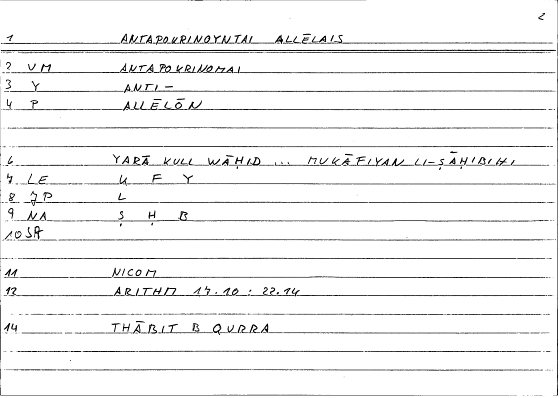 2
1 ANTAPOKRINOYNTAI ALLĒLAIS
2 VM ANTAPOKRINOMAI
3 Y ANTI-
4 P ALLĒLŌN
6 YARĀ KULL WĀḤID ... MUKĀFIYAN LI-ṢĀḤIBIHI
7 LE K F Y
8 JP L
9 NA Ṣ Ḥ B
10
11 NICOM
12 ARITHM 17.10 : 22.14
14 THĀBIT B QURRA